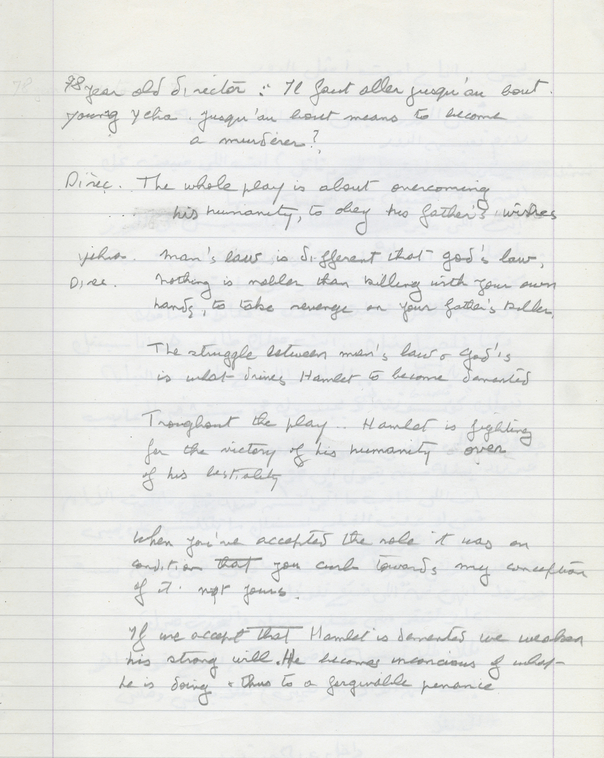 78 year old director : Il faut aller jusqu'au bout.
young Yehia. jusqu'au bout means to become
a murderer?
Direc. The whole play is about overcoming
... his humanity, to obey his father's wishes
Yehia. man's law is different that god's law,
Direc. nothing is nobler than killing with your own
hands, to take revenge on your father's killer.
The struggle between man's law & God's
is what drives Hamlet to become demented
Troughout the play.. Hamlet is fighting
for the victory of his humanity over
of his bestiality
When you've accepted the role it was on
condition that you work towards my conception
of it. not yours.
If we accept that Hamlet is demented we weaken
his strong will. He becomes inconcious of what
he is doing & thus to a forgivable